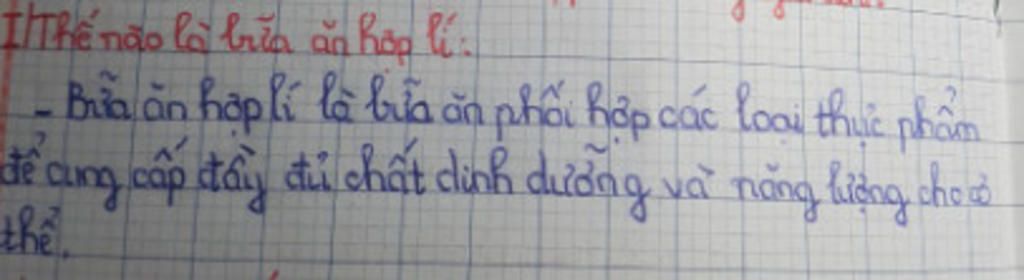 I/ Thế nào là bữa ăn hợp lí:
- Bữa ăn hợp lí là bữa ăn phối hợp các loại thực phẩm
để cung cấp đầy đủ chất dinh dưỡng và năng lượng cho cơ
thể.